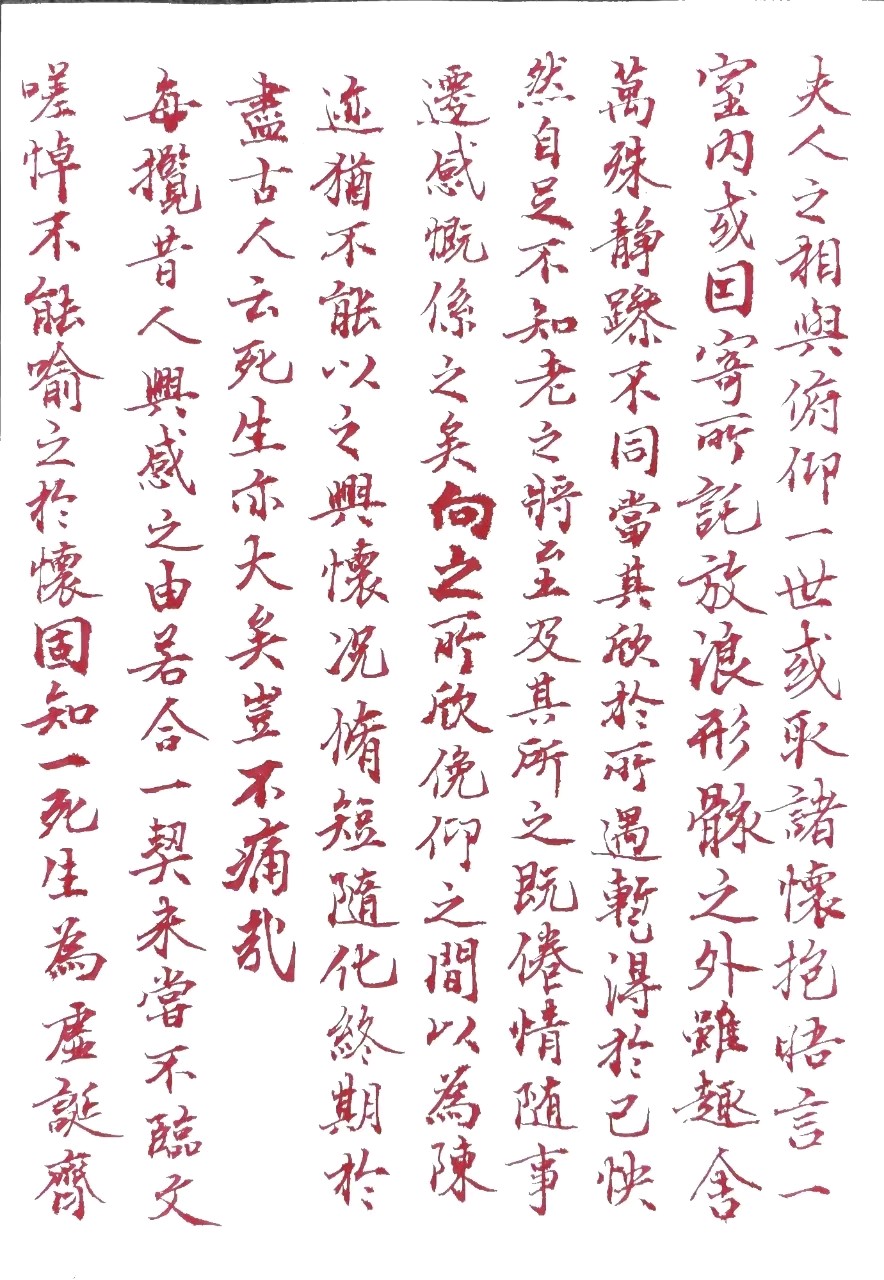 夫人之相與俯仰一世或取諸懷抱晤言一
室内或因寄所託放浪形骸之外雖趣舍
萬殊靜躁不同當其欣於所遇暫得於己快
然自足不知老之將至及其所之既倦情随事
遷感慨係之矣向之所欣俛仰之間以為陳
迹猶不能以之興懷况脩短隨化終期於
盡古人云死生亦大矣豈不痛哉
每攬昔人興感之由若合一契未嘗不臨文
嗟悼不能喻之於懷固知一死生為虛誕齊